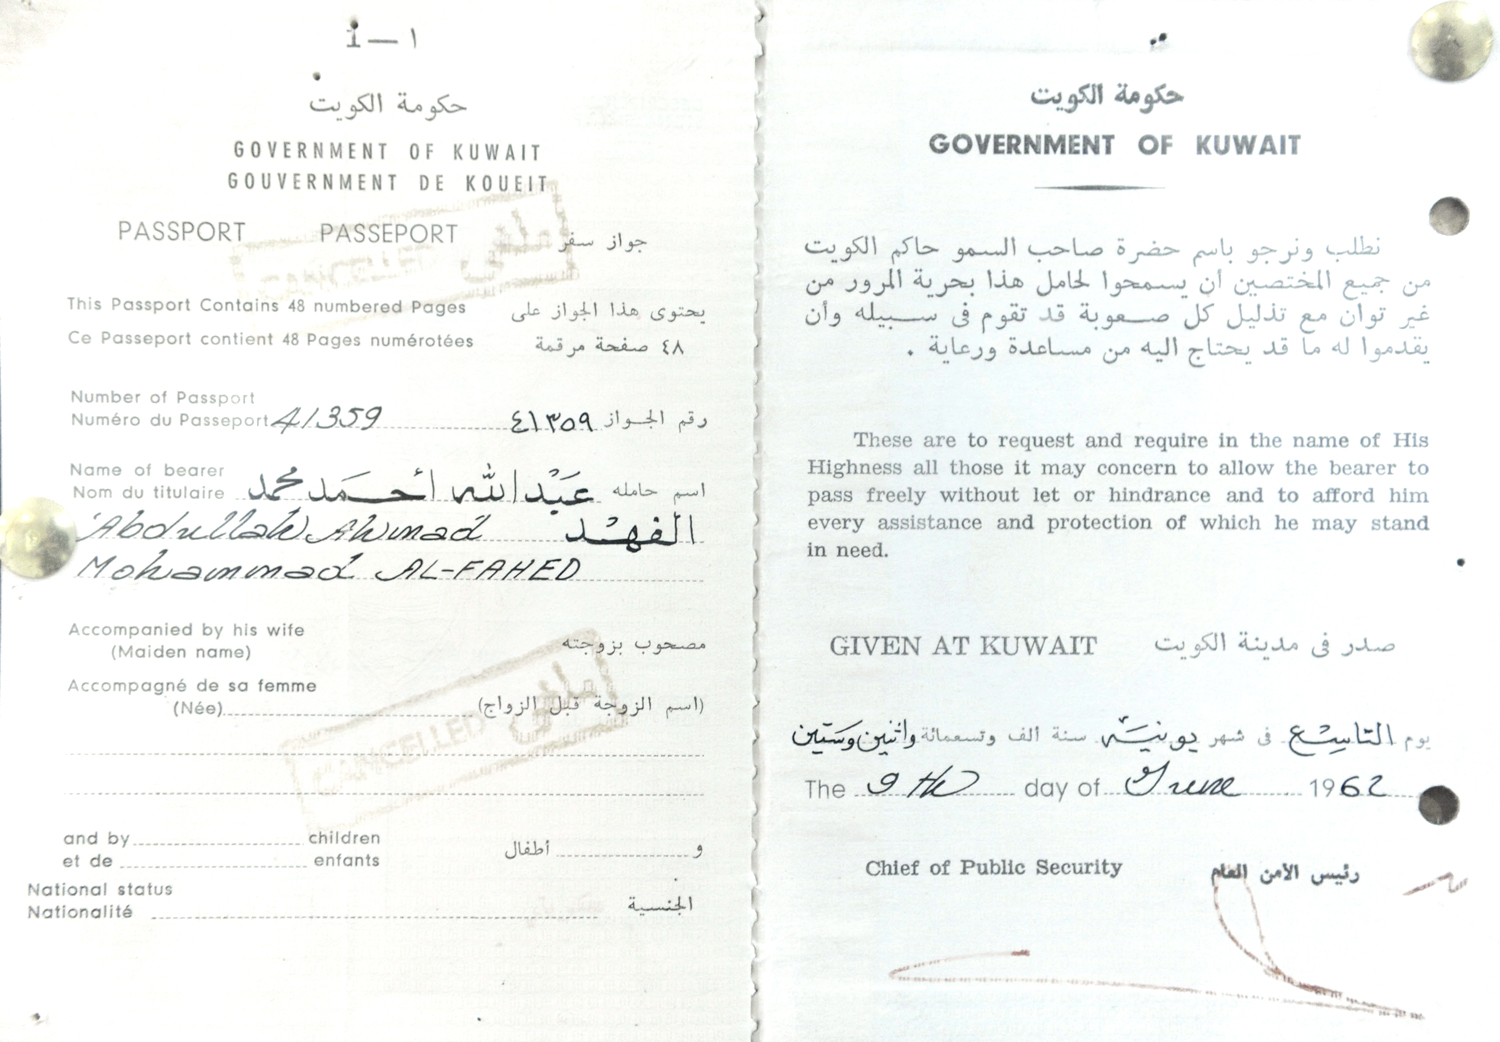 1 — ١
حكومة الكويت
GOVERNMENT OF KUWAIT
GOUVERNMENT DE KOUEIT
PASSPORT PASSEPORT جواز سفر
This Passport Contains 48 numbered Pages يحتوى هذا الجواز على
Ce Passeport contient 48 Pages numérotées ٤٨ صفحة مرقمة
Number of Passport
Numéro du Passeport 41359 رقم الجواز ٤١٣٥٩
Name of bearer
Nom du titulaire اسم حامله عبد الله أحمد محمد
'Abdullah Ahmad الفهد
Mohammad AL-FAHED
Accompanied by his wife مصحوب بزوجته
(Maiden name)
Accompagné de sa femme
(Née) (اسم الزوجة قبل الزواج)
and by children
et de enfants و أطفال
National status
Nationalité الجنسية
CANCELLED
CANCELLED
حكومة الكويت
GOVERNMENT OF KUWAIT
نطلب ونرجو باسم حضرة صاحب السمو حاكم الكويت
من جميع المختصين ان يسمحوا لحامل هذا بحرية المرور من
غير توان مع تذليل كل صعوبة قد تقوم فى سبيله وأن
يقدموا له ما قد يحتاج اليه من مساعدة ورعاية .
These are to request and require in the name of His
Highness all those it may concern to allow the bearer to
pass freely without let or hindrance and to afford him
every assistance and protection of which he may stand
in need.
GIVEN AT KUWAIT صدر فى مدينة الكويت
يوم التاسع فى شهر يونية سنة الف وتسعمائة واثنين وستين
The 9th day of June 1962
Chief of Public Security رئيس الأمن العام